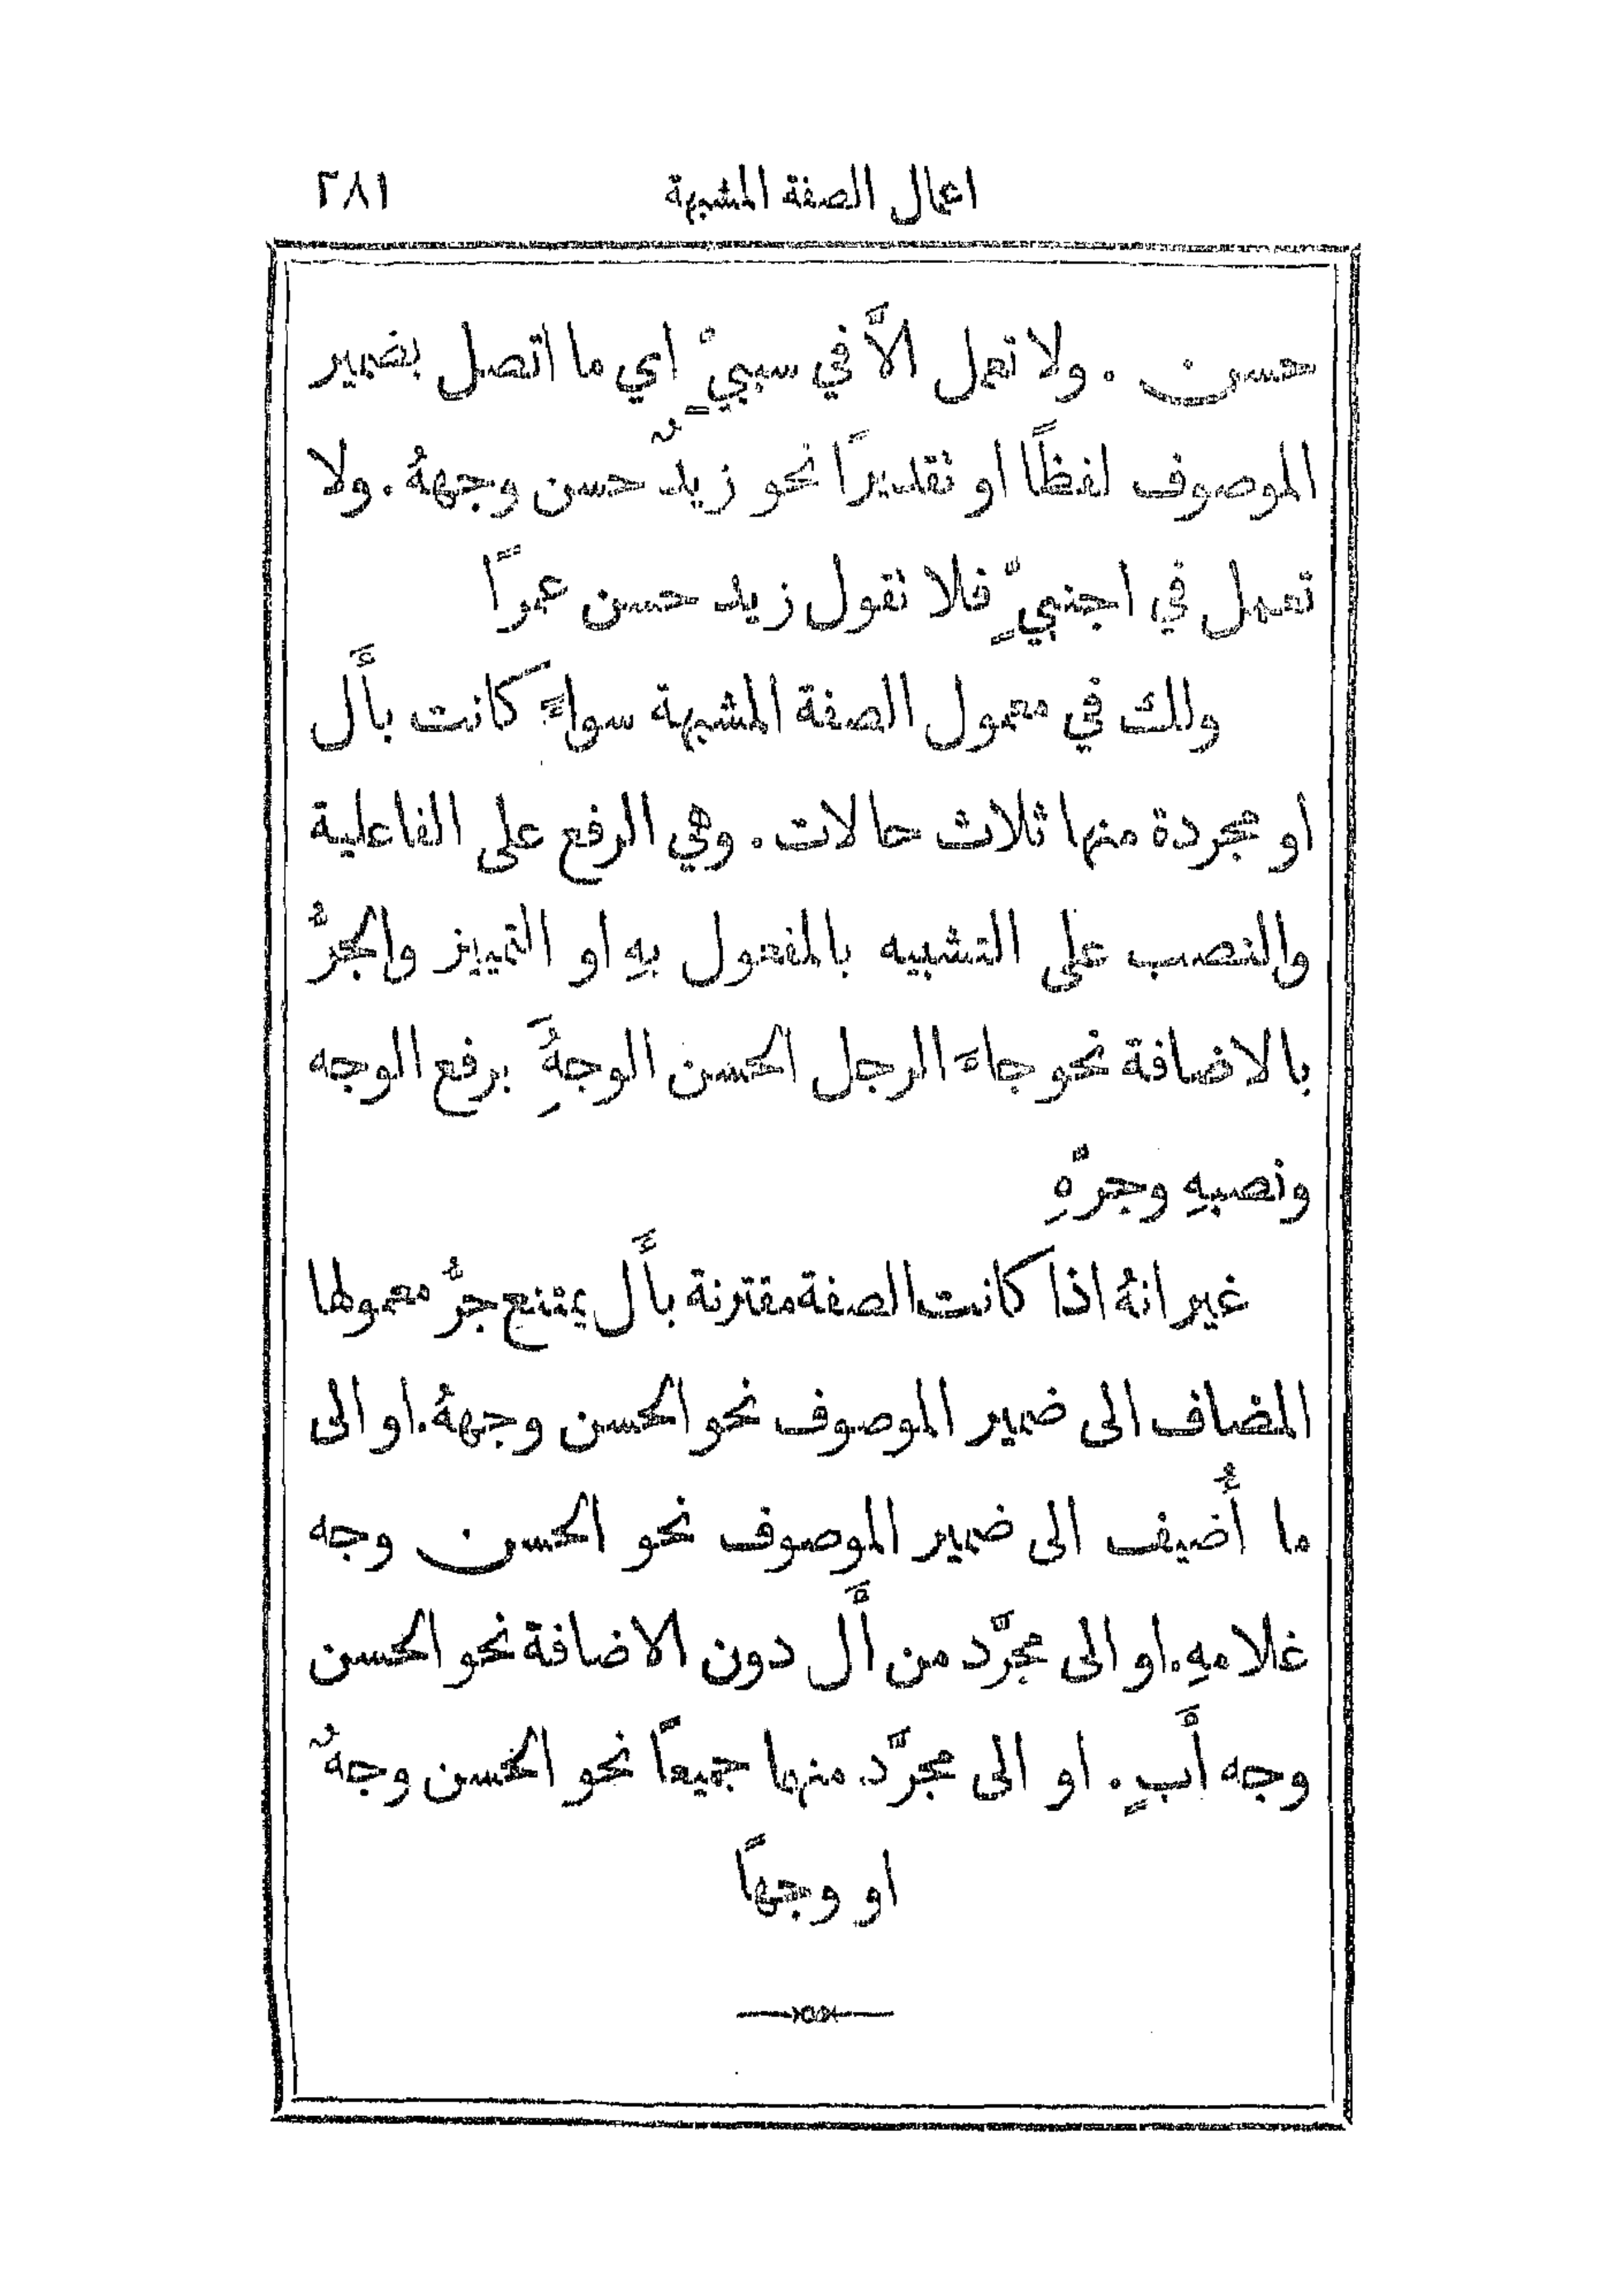 اعمال الصفة المشبهة ٢٨١
حسن . ولا تعمل الاَّ في سببيٍّ اي ما اتصل بضمير
الموصوف لفظًا او تقديرًا نحو زيدٌ حسن وجههُ. ولا
تعمل في اجنبيٍّ فلا تقول زيد حسن عمرًا
ولك في معمول الصفة المشبهة سواءً كانت بأَل
او مجردة منها ثلاث حالات. وهي الرفع على الفاعلية
والنصب على التشبيه بالمفعول بهِ او التمييز والجرُّ
بالاضافة نحو جاءَ الرجل الحسن الوجهَُِ برفع الوجه
ونصبهِ وجرّهِ
غير انهُ اذا كانت الصفة مقترنة بأَل يمتنع جرُّ معمولها
المضاف الى ضمير الموصوف نحو الحسن وجههُ. او الى
ما أُضيف الى ضمير الموصوف نحو الحسن وجه
غلامهِ. او الى مجرَّد من أَل دون الاضافة نحو الحسن
وجه أَبٍ. او الى مجرَّد منهما جميعًا نحو الحسن وجهٌ
او وجهًا